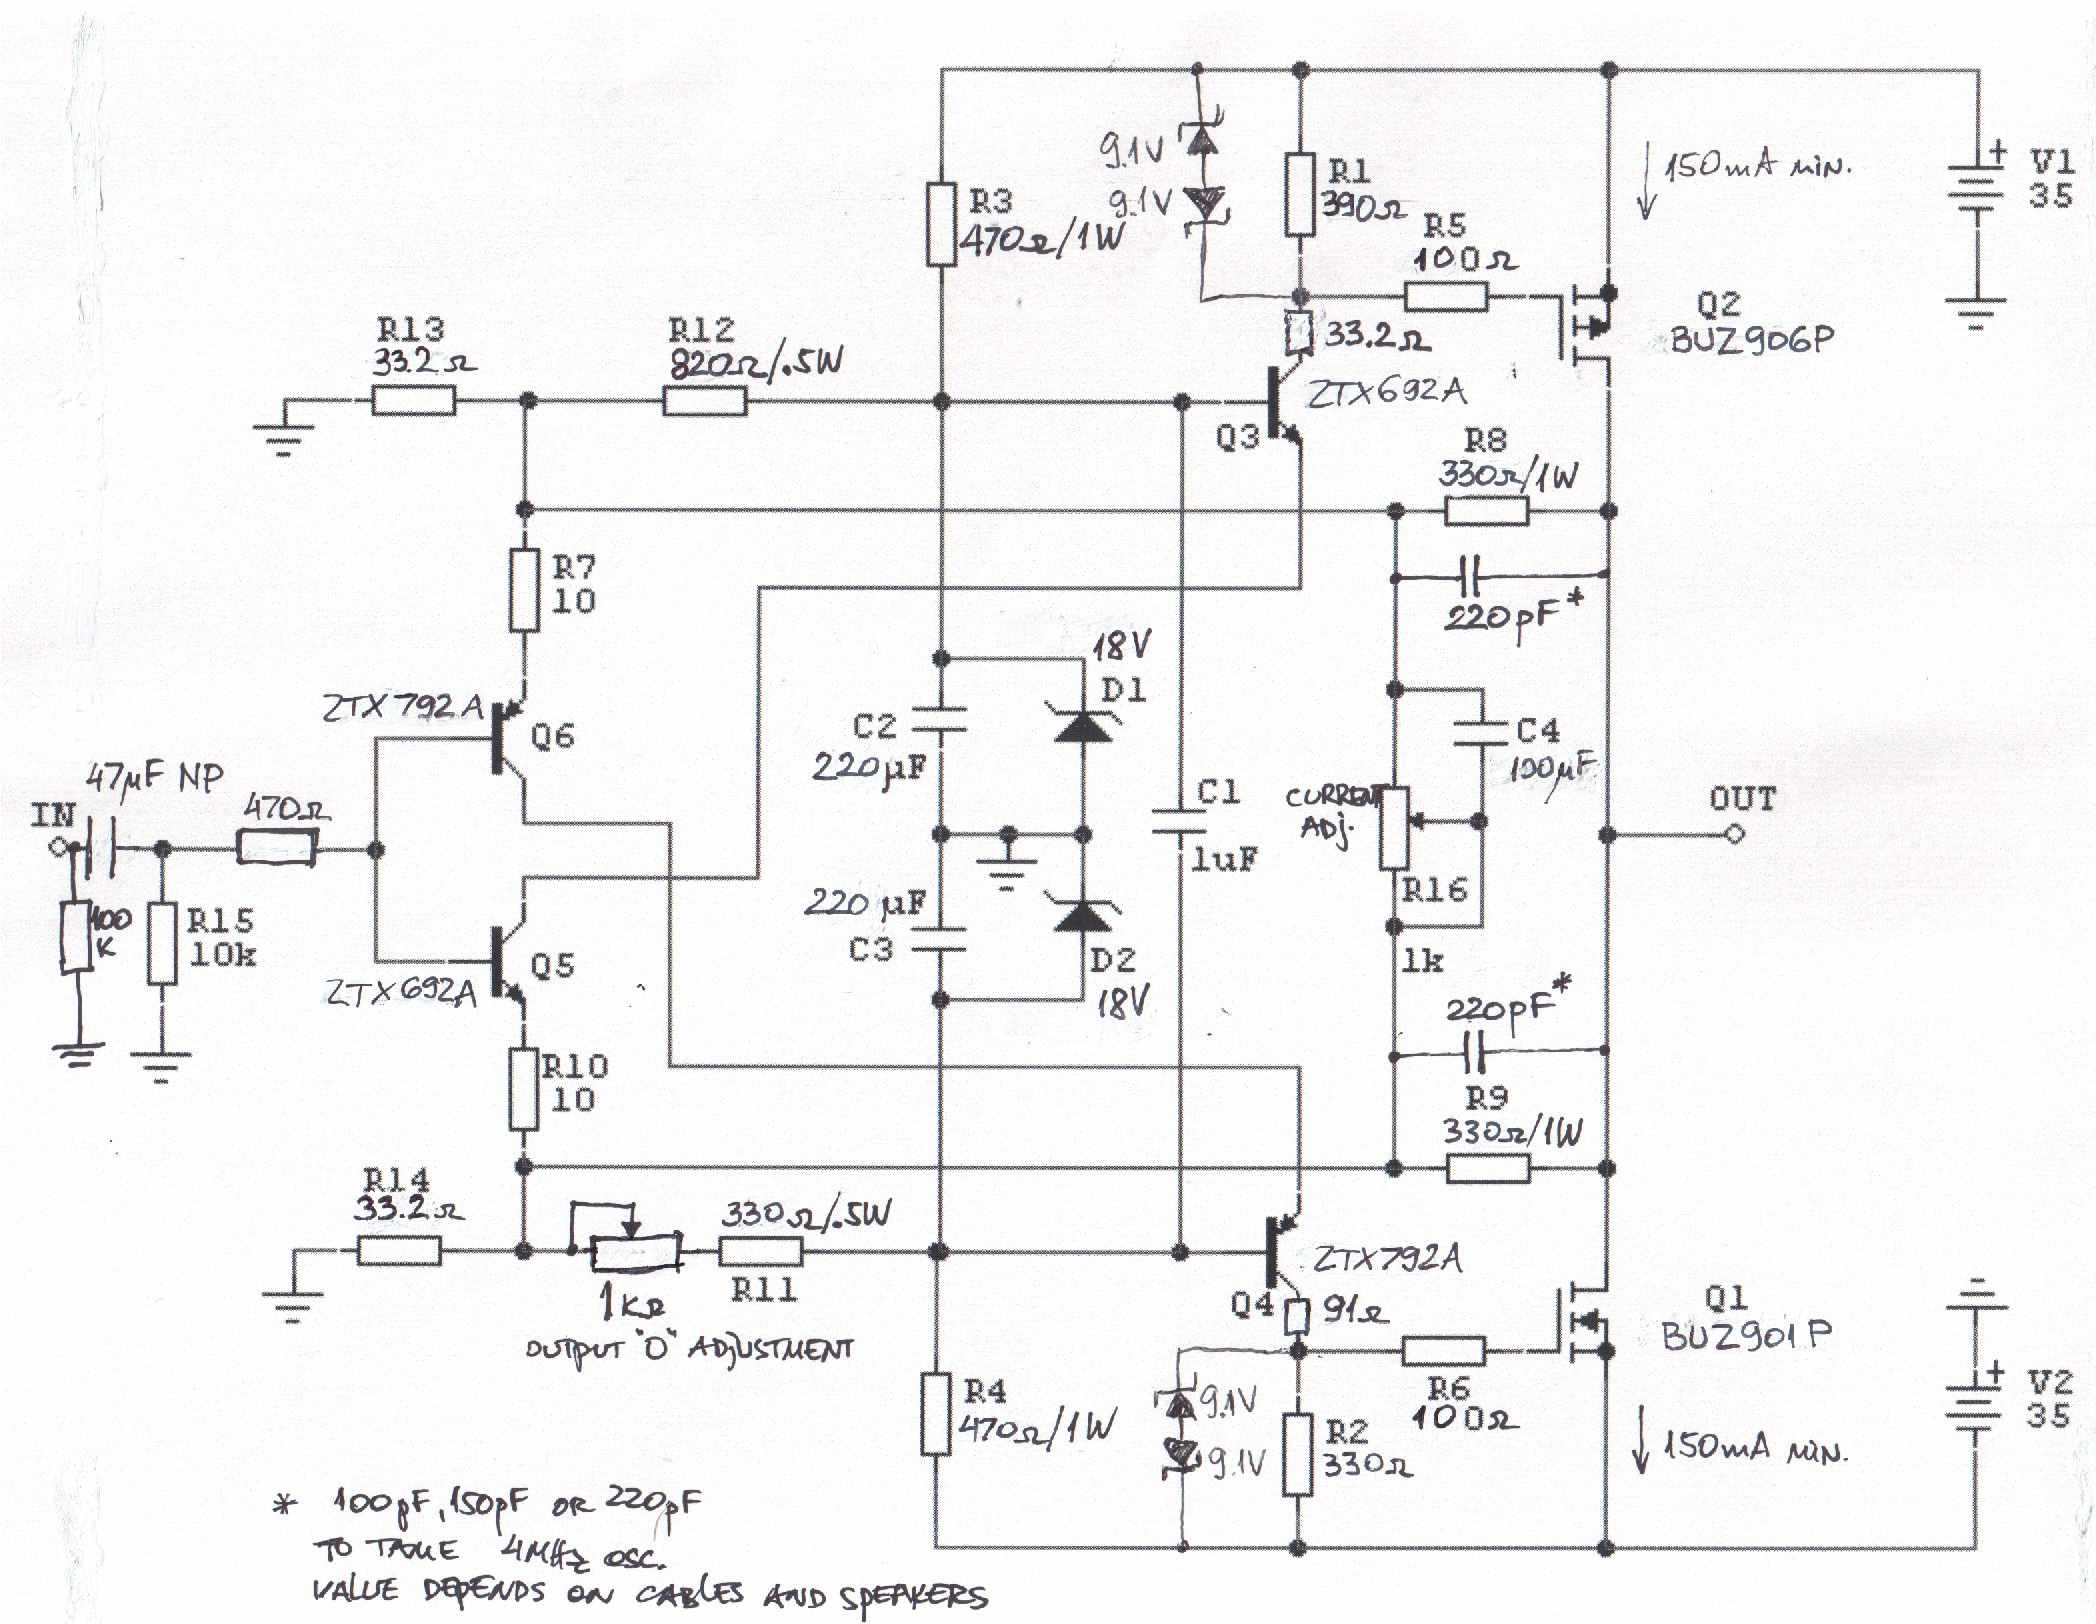 9.1V
9.1V
R1
390Ω
150mA MIN.
+
V1
35
R3
470Ω/1W
R5
100Ω
Q2
BUZ906P
R13
33.2Ω
R12
820Ω/.5W
33.2Ω
ZTX692A
Q3
R8
330Ω/1W
R7
10
220pF*
18V
D1
ZTX792A
Q6
C2
220µF
C4
100µF
47µF NP
IN
470Ω
CURRENT
ADJ.
C1
1uF
OUT
R16
1k
100
K
R15
10k
220µF
C3
Q5
ZTX692A
D2
18V
220pF*
R10
10
R9
330Ω/1W
R14
33.2Ω
330Ω/.5W
R11
1KΩ
OUTPUT "0" ADJUSTMENT
ZTX792A
Q4
91Ω
Q1
BUZ901P
R4
470Ω/1W
9.1V
9.1V
R6
100Ω
R2
330Ω
150mA MIN.
+
V2
35
* 100pF, 150pF OR 220pF
TO TAME 4MHz OSC.
VALUE DEPENDS ON CABLES AND SPEAKERS